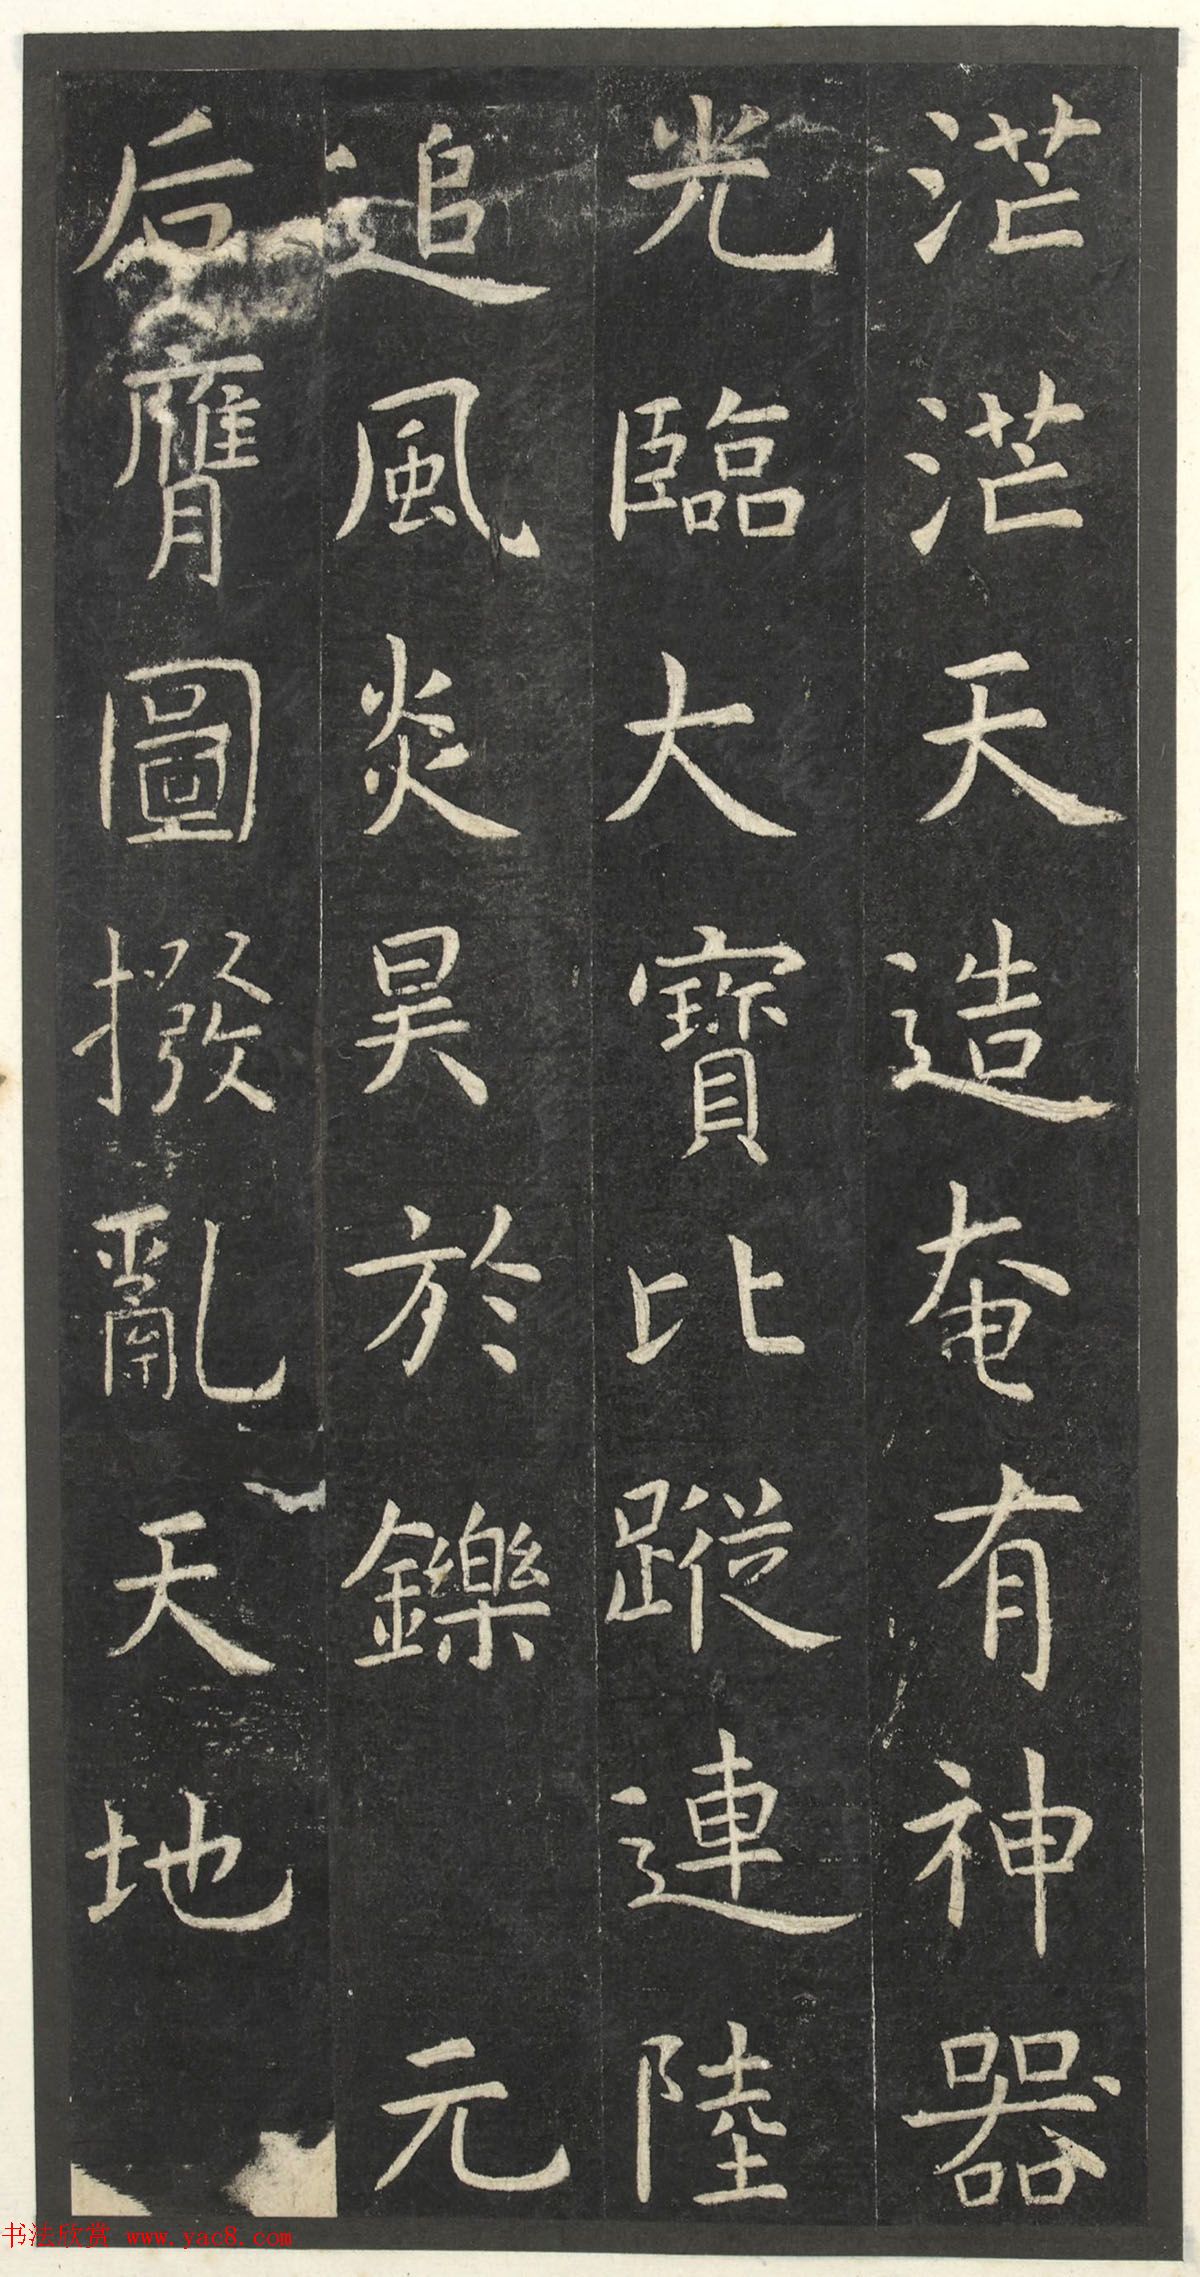 茫茫天造奄有神器
光臨大寶比蹤連陸
追風炎昊於鑠 元
后膺圖撥亂天地
书法欣赏 www.yac8.com